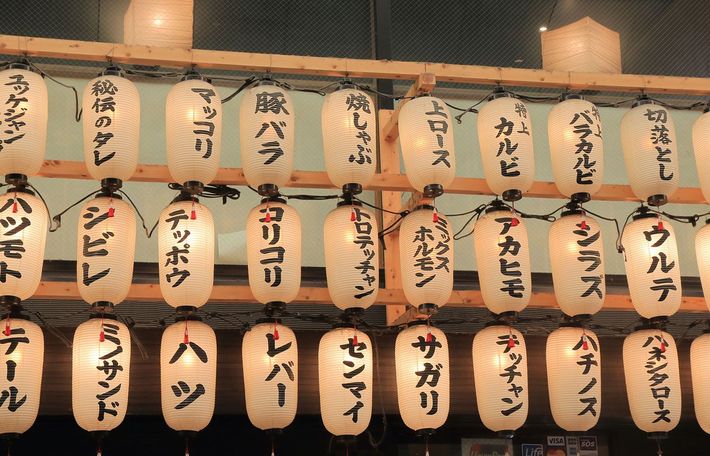 ユッケジャン
秘伝のタレ
マッコリ
豚バラ
焼しゃぶ
上ロース
特上
カルビ
特上
バラカルビ
切落とし
ハツモト
シビレ
テッポウ
コリコリ
ホロテッチャン
ミックス
ホルモン
アカヒモ
シラス
ウルテ
テール
ミノサンド
ハツ
レバー
センマイ
サガリ
テッチャン
ハチノス
ハネシタロース
Life
VISA
SOS